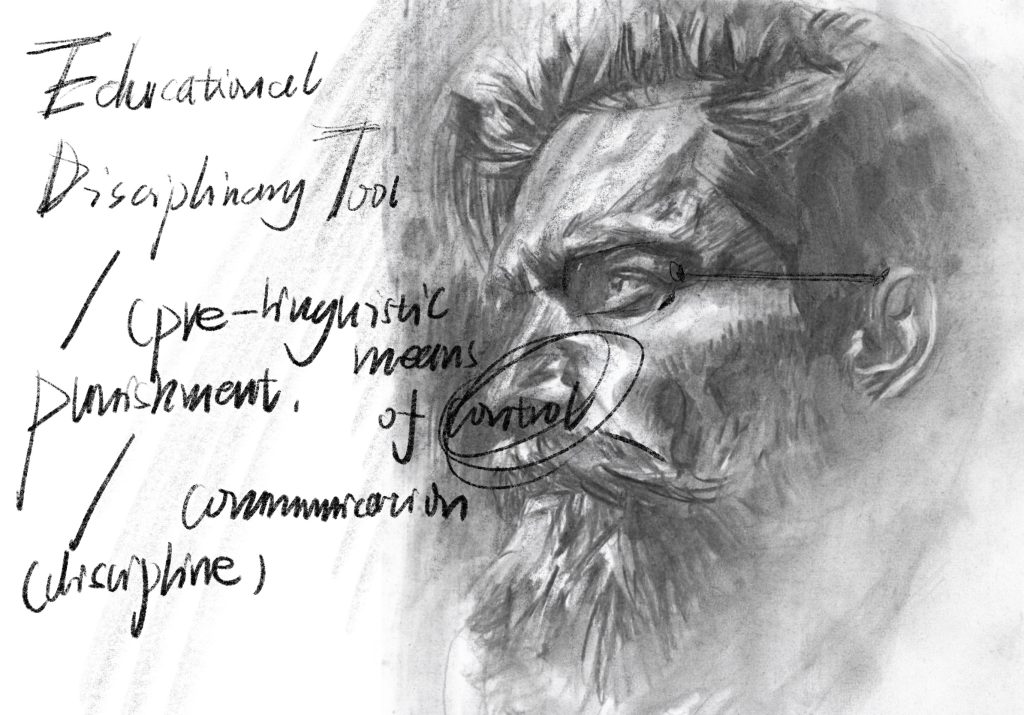 Educational
Disciplinary Tool
/ (pre-linguistic
means
punishment. of control
/ communication
(discipline)